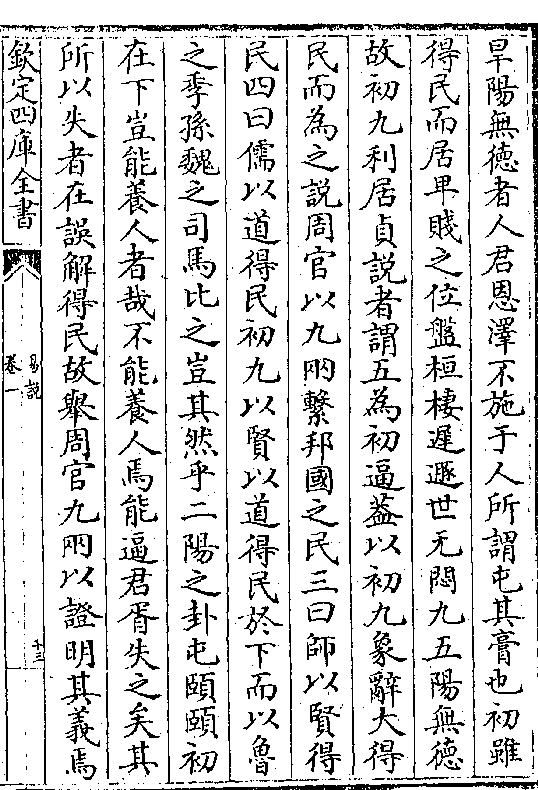 旱陽無徳者人君恩澤不施于人所謂屯其膏也初雖
得民而居卑賤之位盤桓棲遲遯世无悶九五陽無德
故初九利居貞説者謂五為初逼葢以初九象辭大得
民而為之説周官以九兩繫邦國之民三曰師以賢得
民四曰儒以道得民初九以賢以道得民於下而以魯
之季孫魏之司馬比之豈其然乎二陽之卦屯頤頤初
在下豈能養人者哉不能養人焉能逼君胥失之矣其
所以失者在誤解得民故舉周官九兩以證明其義焉
欽定四庫全書
易説
卷一
十三